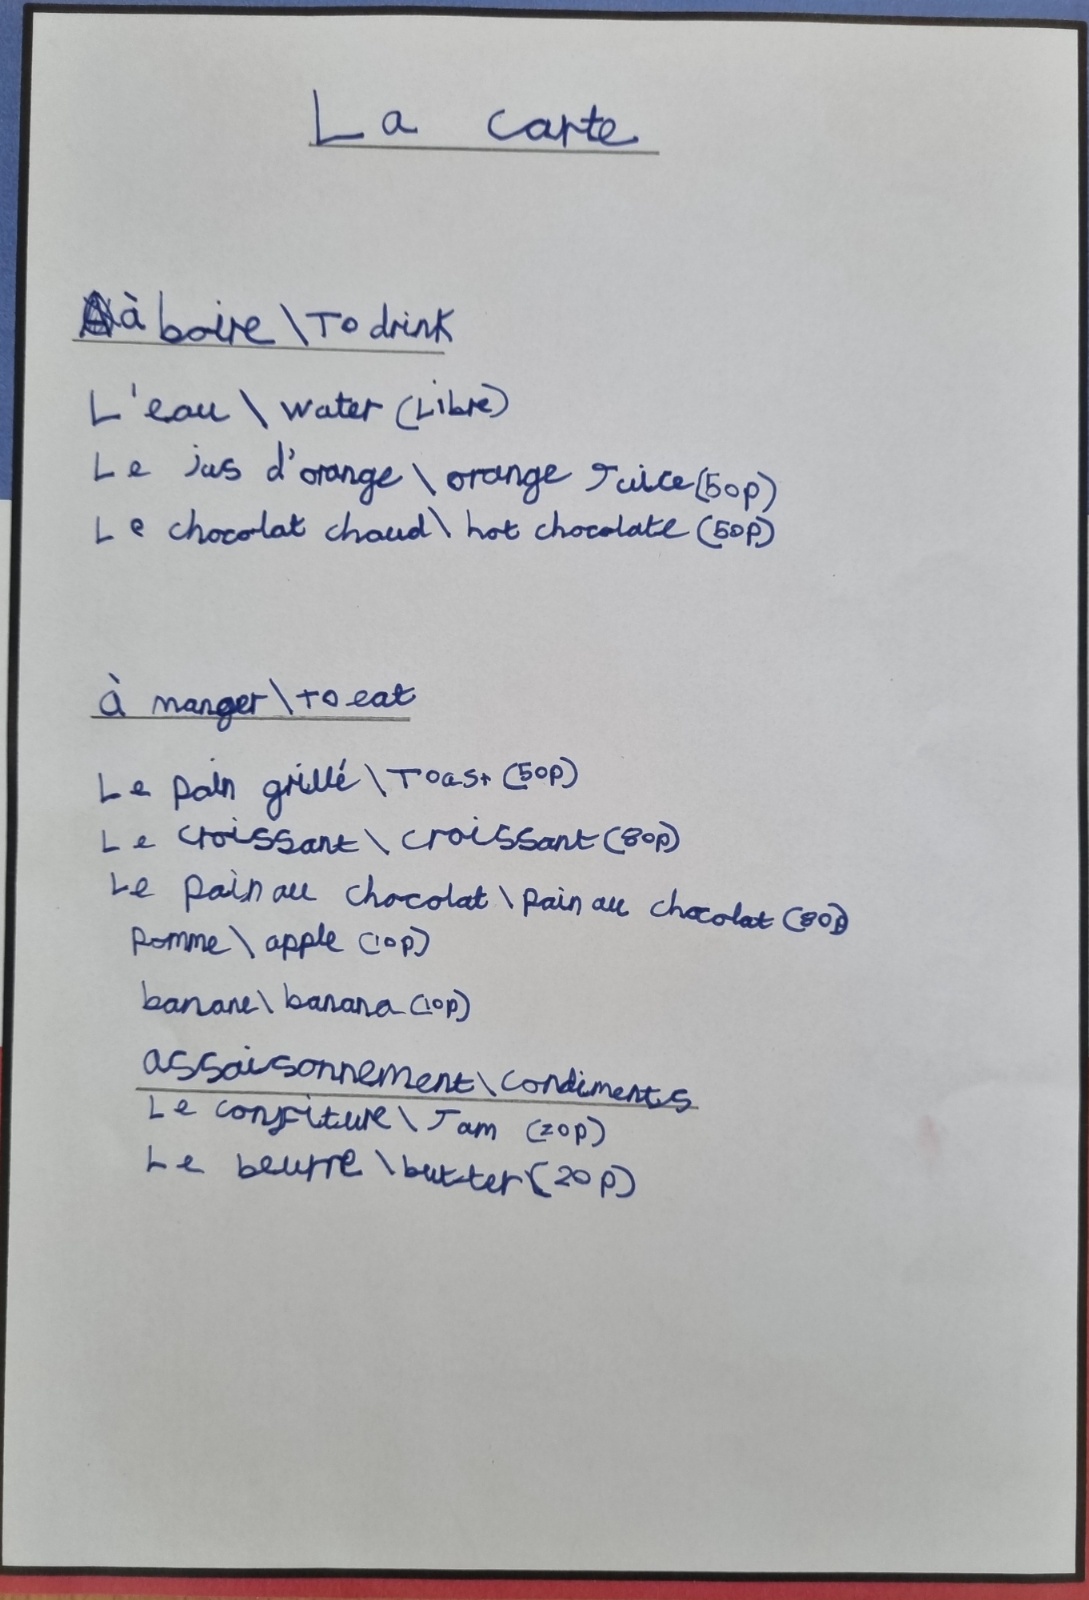 La carte
à boire \ To drink
L'eau \ water (Libre)
Le jus d'orange \ orange Juice (50p)
Le chocolat chaud \ hot chocolate (50p)
à manger \ to eat
Le pain grillé \ Toast (50p)
Le croissant \ croissant (80p)
Le pain au chocolat \ pain au chocolat (80p)
Pomme \ apple (10p)
banane \ banana (10p)
assaisonnement \ condiments
Le confiture \ Jam (20p)
Le beurre \ butter (20p)